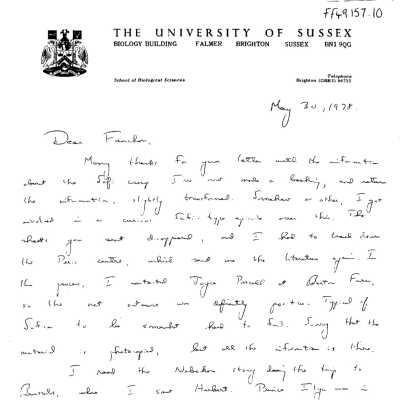 ff49157.10
THE UNIVERSITY OF SUSSEX
BIOLOGY BUILDING FALMER BRIGHTON SUSSEX BN1 9QG
School of Biological Sciences
Telephone
Brighton (0273) 66755
May 30, 1978.
Dear
Many thanks for your letter with the information
about the camp I've now made a booking, and return
the information, slightly transformed. Somehow or other, I got
involved in a curious type episode over this. The
sheets you sent disappeared, and I had to track down
the Paris centre, which sent me the literature again. In
the process, I contacted Joyce at
so the net outcome was definitely positive. Typical of
to be somewhat hard to find. Sorry that the
material is photocopied, but all the information is there.
I read the story during the trip to
Brussels, where I saw Herbert. in